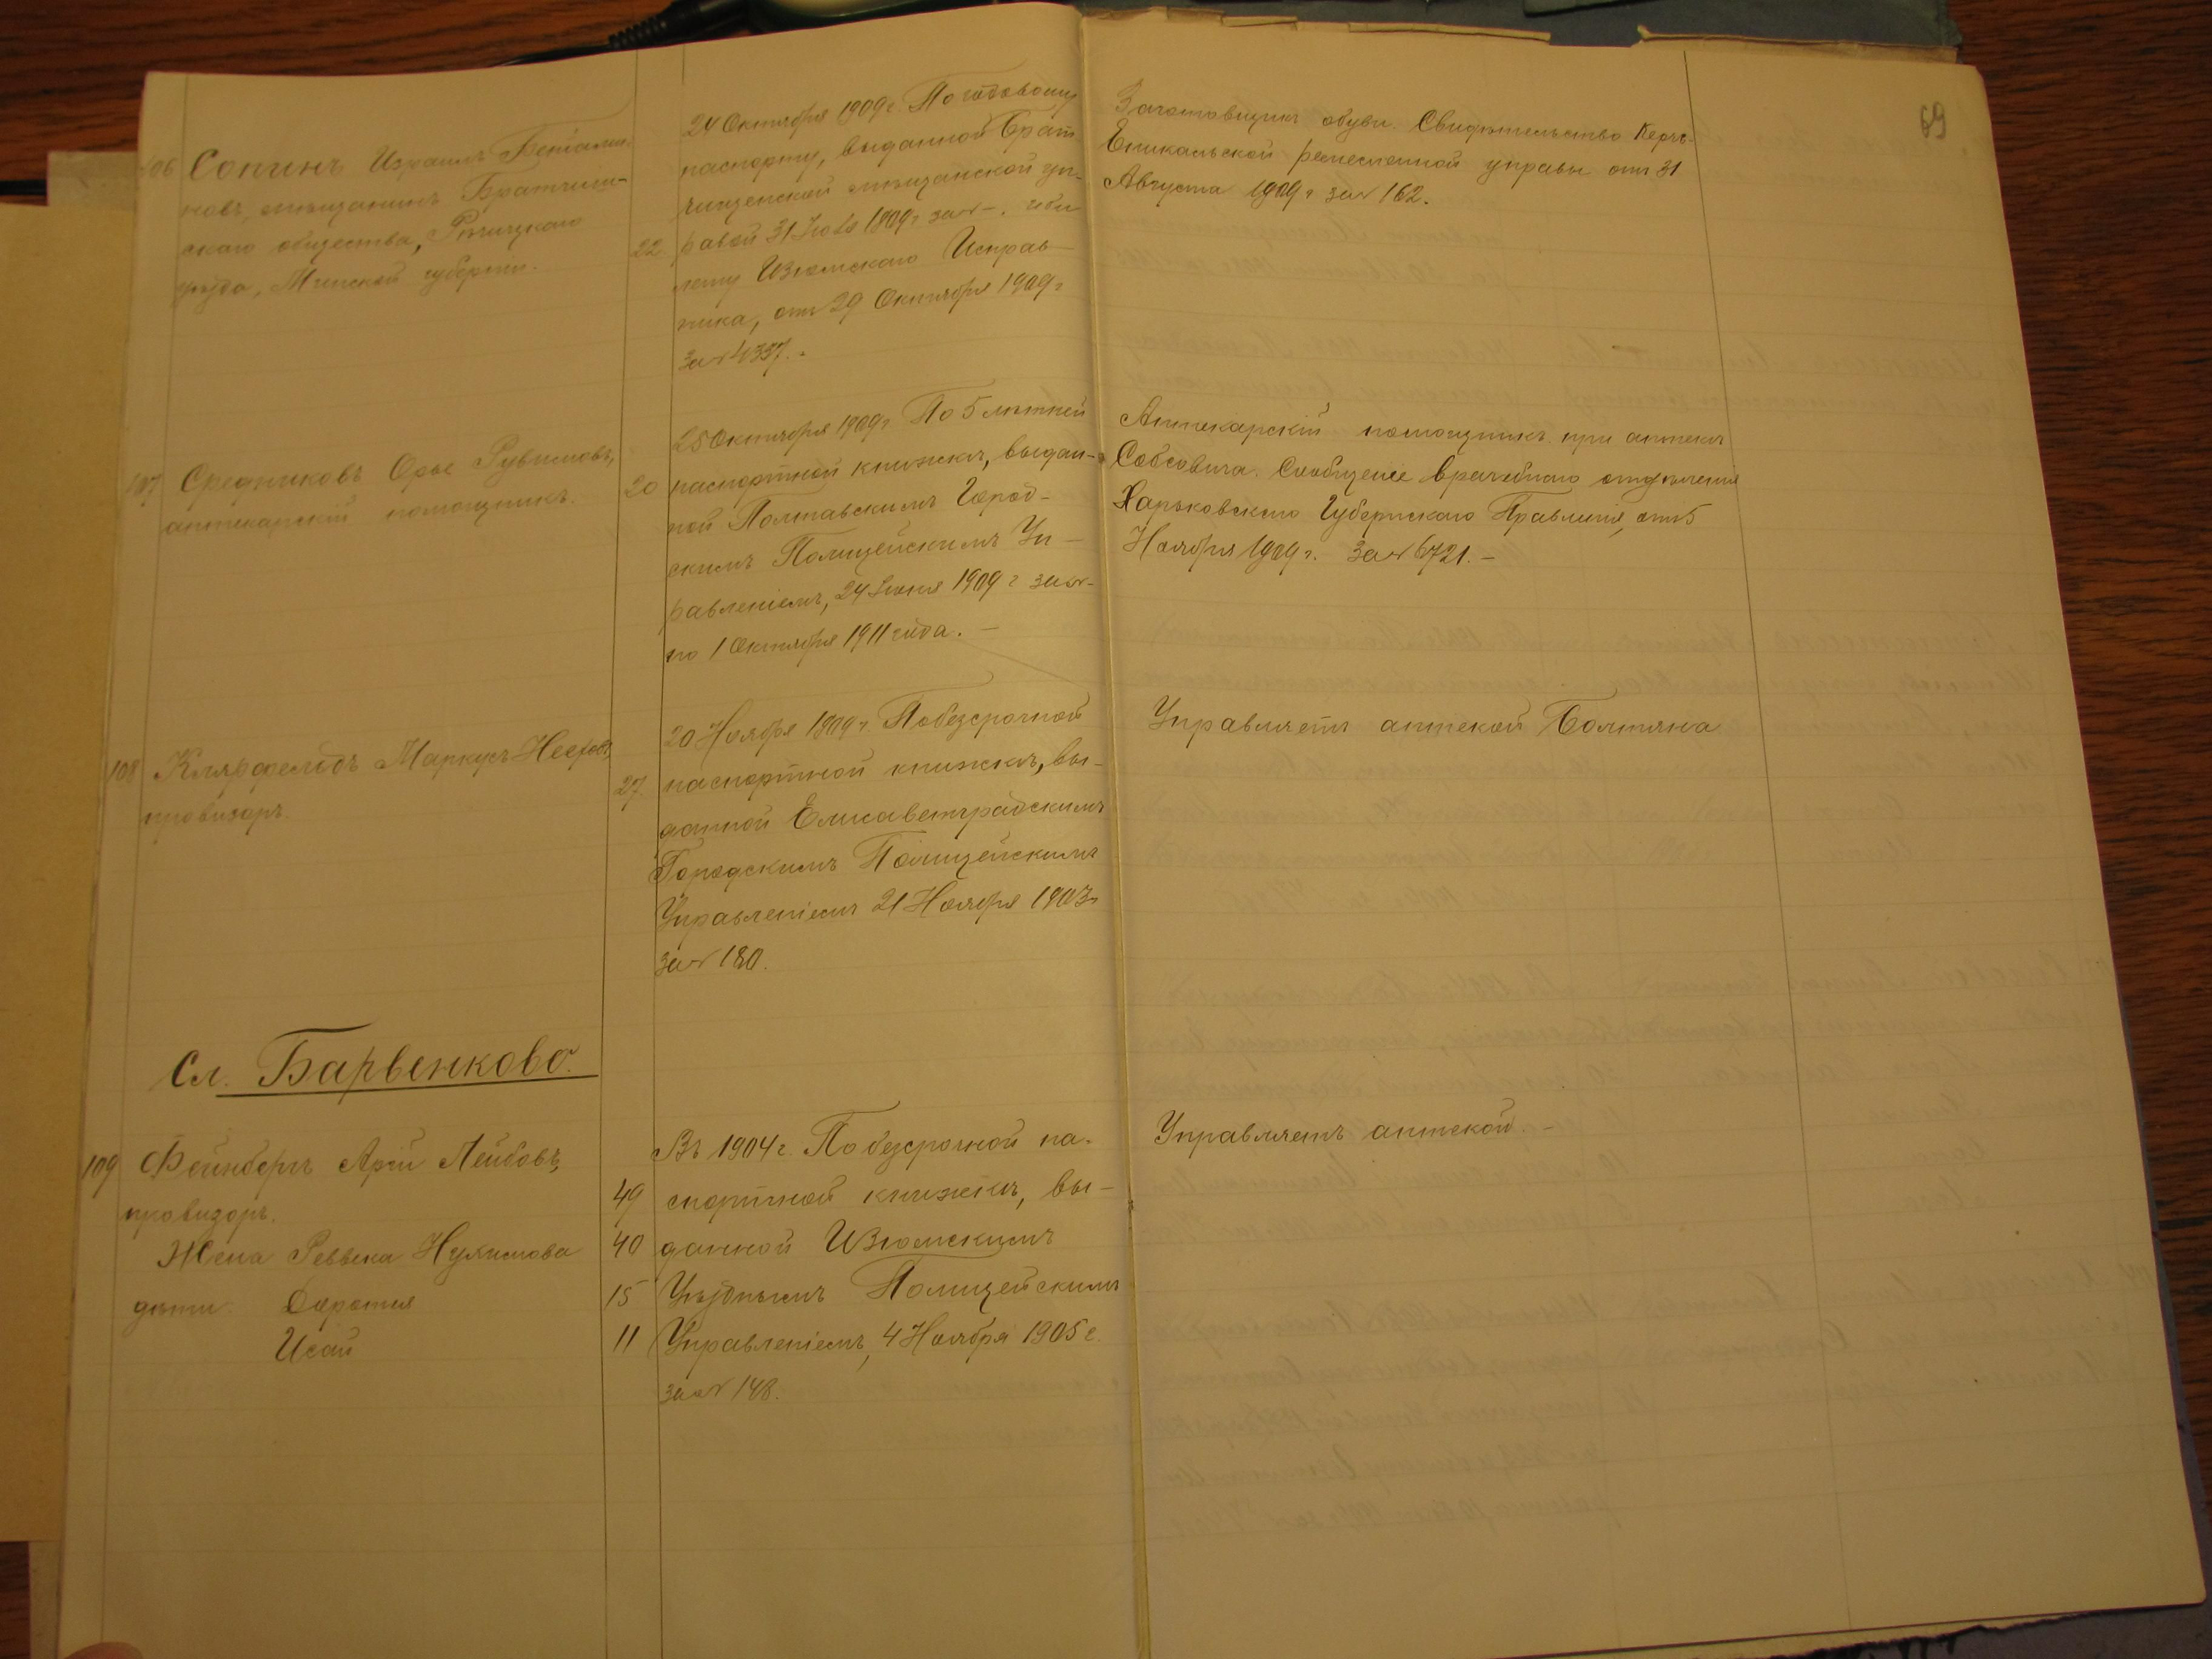 69
106 Сопинъ Израиль Беніами-
новъ, мѣщанинъ Братчин-
скаго общества, Рѣчицкаго
уѣзда, Минской губерніи.
22
24 Октября 1909 г. По годовому
паспорту, выданной Брат
чиценской мѣщанской уп-
равой 31 1909 г за № –.
Изюмскаго Исправ-
ника, отъ 29 Октября 1909 г
за № 4337. –
Заготовщикъ обуви. Свидѣтельство Керчь-
Еникальской ремесленной управы отъ 31
Августа 1909 г за № 162.
107 Средниковъ Орье Рувимовъ,
аптекарскій помощникъ.
20
25 Октября 1909 г По 5 лѣтней
паспортной книжкѣ, выдан-
ной Полтавскимъ Город-
скимъ Полицейскимъ Уп-
равленіемъ, 24 Іюня 1909 г за № –
по 1 Октября 1911 года. –
Аптекарскій помощникъ при аптекѣ
Собсовича. Сообщеніе врачебнаго отдѣленія
Харьковскаго Губернскаго Правленія, отъ 5
Ноября 1909 г. за № 6721. –
108 Клярфельдъ Маркусъ Нееховъ,
провизоръ.
27.
20 Ноября 1909 г. По безсрочной
паспортной книжкѣ, вы-
данной Елисаветградскимъ
Городскимъ Полицейскимъ
Управленіемъ 21 Ноября 1903 г
за № 180.
Управляетъ аптекой Болтяна
Сл. Барвенково.
109 Фейнбергъ Арій Лейбовъ,
провизоръ.
Жена Реввека Нухимова
дѣти. Доротея
Исай
49
40
15
11
Въ 1904 г. По безсрочной па-
спортной книжкѣ, вы-
данной Изюмскимъ
Уѣзднымъ Полицейскимъ
Управленіемъ, 4 Ноября 1905 г.
за № 148.
Управляетъ аптекой –